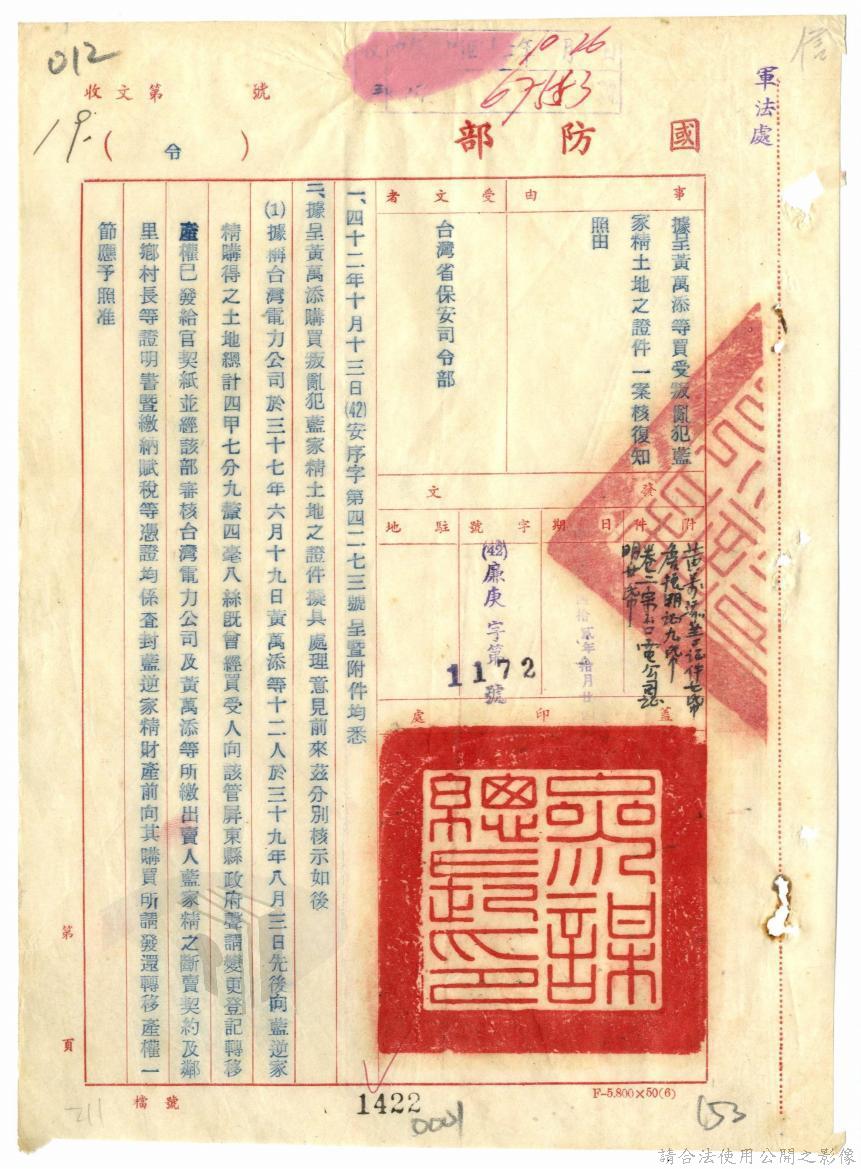 012
收文第 號
19.
10 26
信
軍法處
國防部
(令)
事由
據呈黃萬添等買受叛亂犯藍
家精土地之證件一案核復知
照由
受文者
台灣省保安司令部
發文
附件
黃萬添等証件七紙
卷二宗台電公司證
明廿紙
日期
字號
(42)廉庚字第1172號
駐地
蓋印處
參謀總長印
一、四十二年十月十三日(42)安序字第四二七三號呈暨附件均悉
二、據呈黃萬添購買叛亂犯藍家精土地之證件擬具處理意見前來茲分別核示如後
(1)據稱台灣電力公司於三十七年六月十九日黃萬添等十二人於三十九年八月三日先後向藍逆家
精購得之土地總計四甲七分九釐四毫八絲既曾經買受人向該管屏東縣政府聲請變更登記轉移
產權已發給官契紙並經該部審核台灣電力公司及黃萬添等所繳出賣人藍家精之斷賣契約及鄰
里鄉村長等證明書暨繳納賦稅等憑證均係查封藍逆家精財產前向其購買所請發還轉移產權一
節應予照准
第 頁
檔號
1422
0001
F-5,800×50(6)
153
211
請合法使用公開之影像